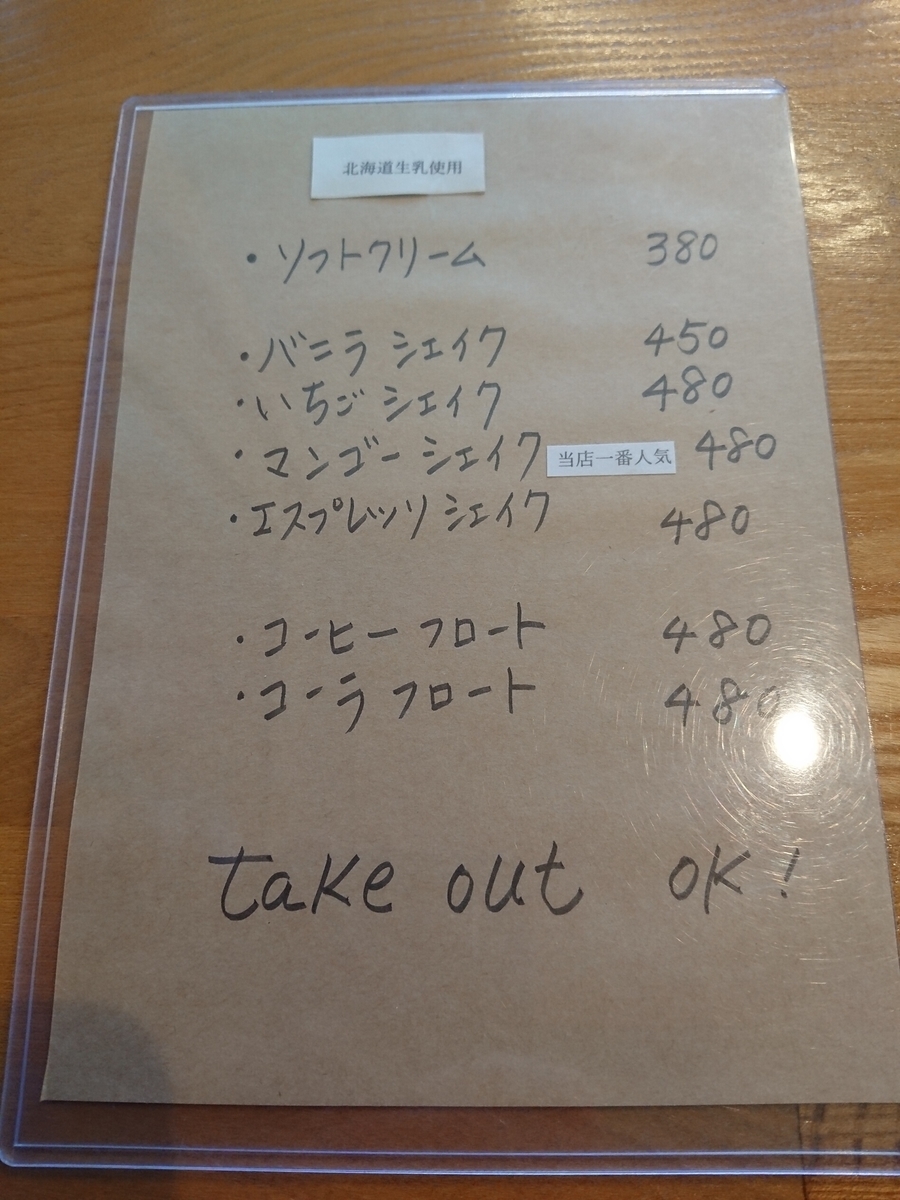 北海道生乳使用
・ソフトクリーム 380
・バニラ シェイク 450
・いちご シェイク 480
・マンゴー シェイク 当店一番人気 480
・エスプレッソ シェイク 480
・コーヒー フロート 480
・コーラ フロート 480
take out ok!